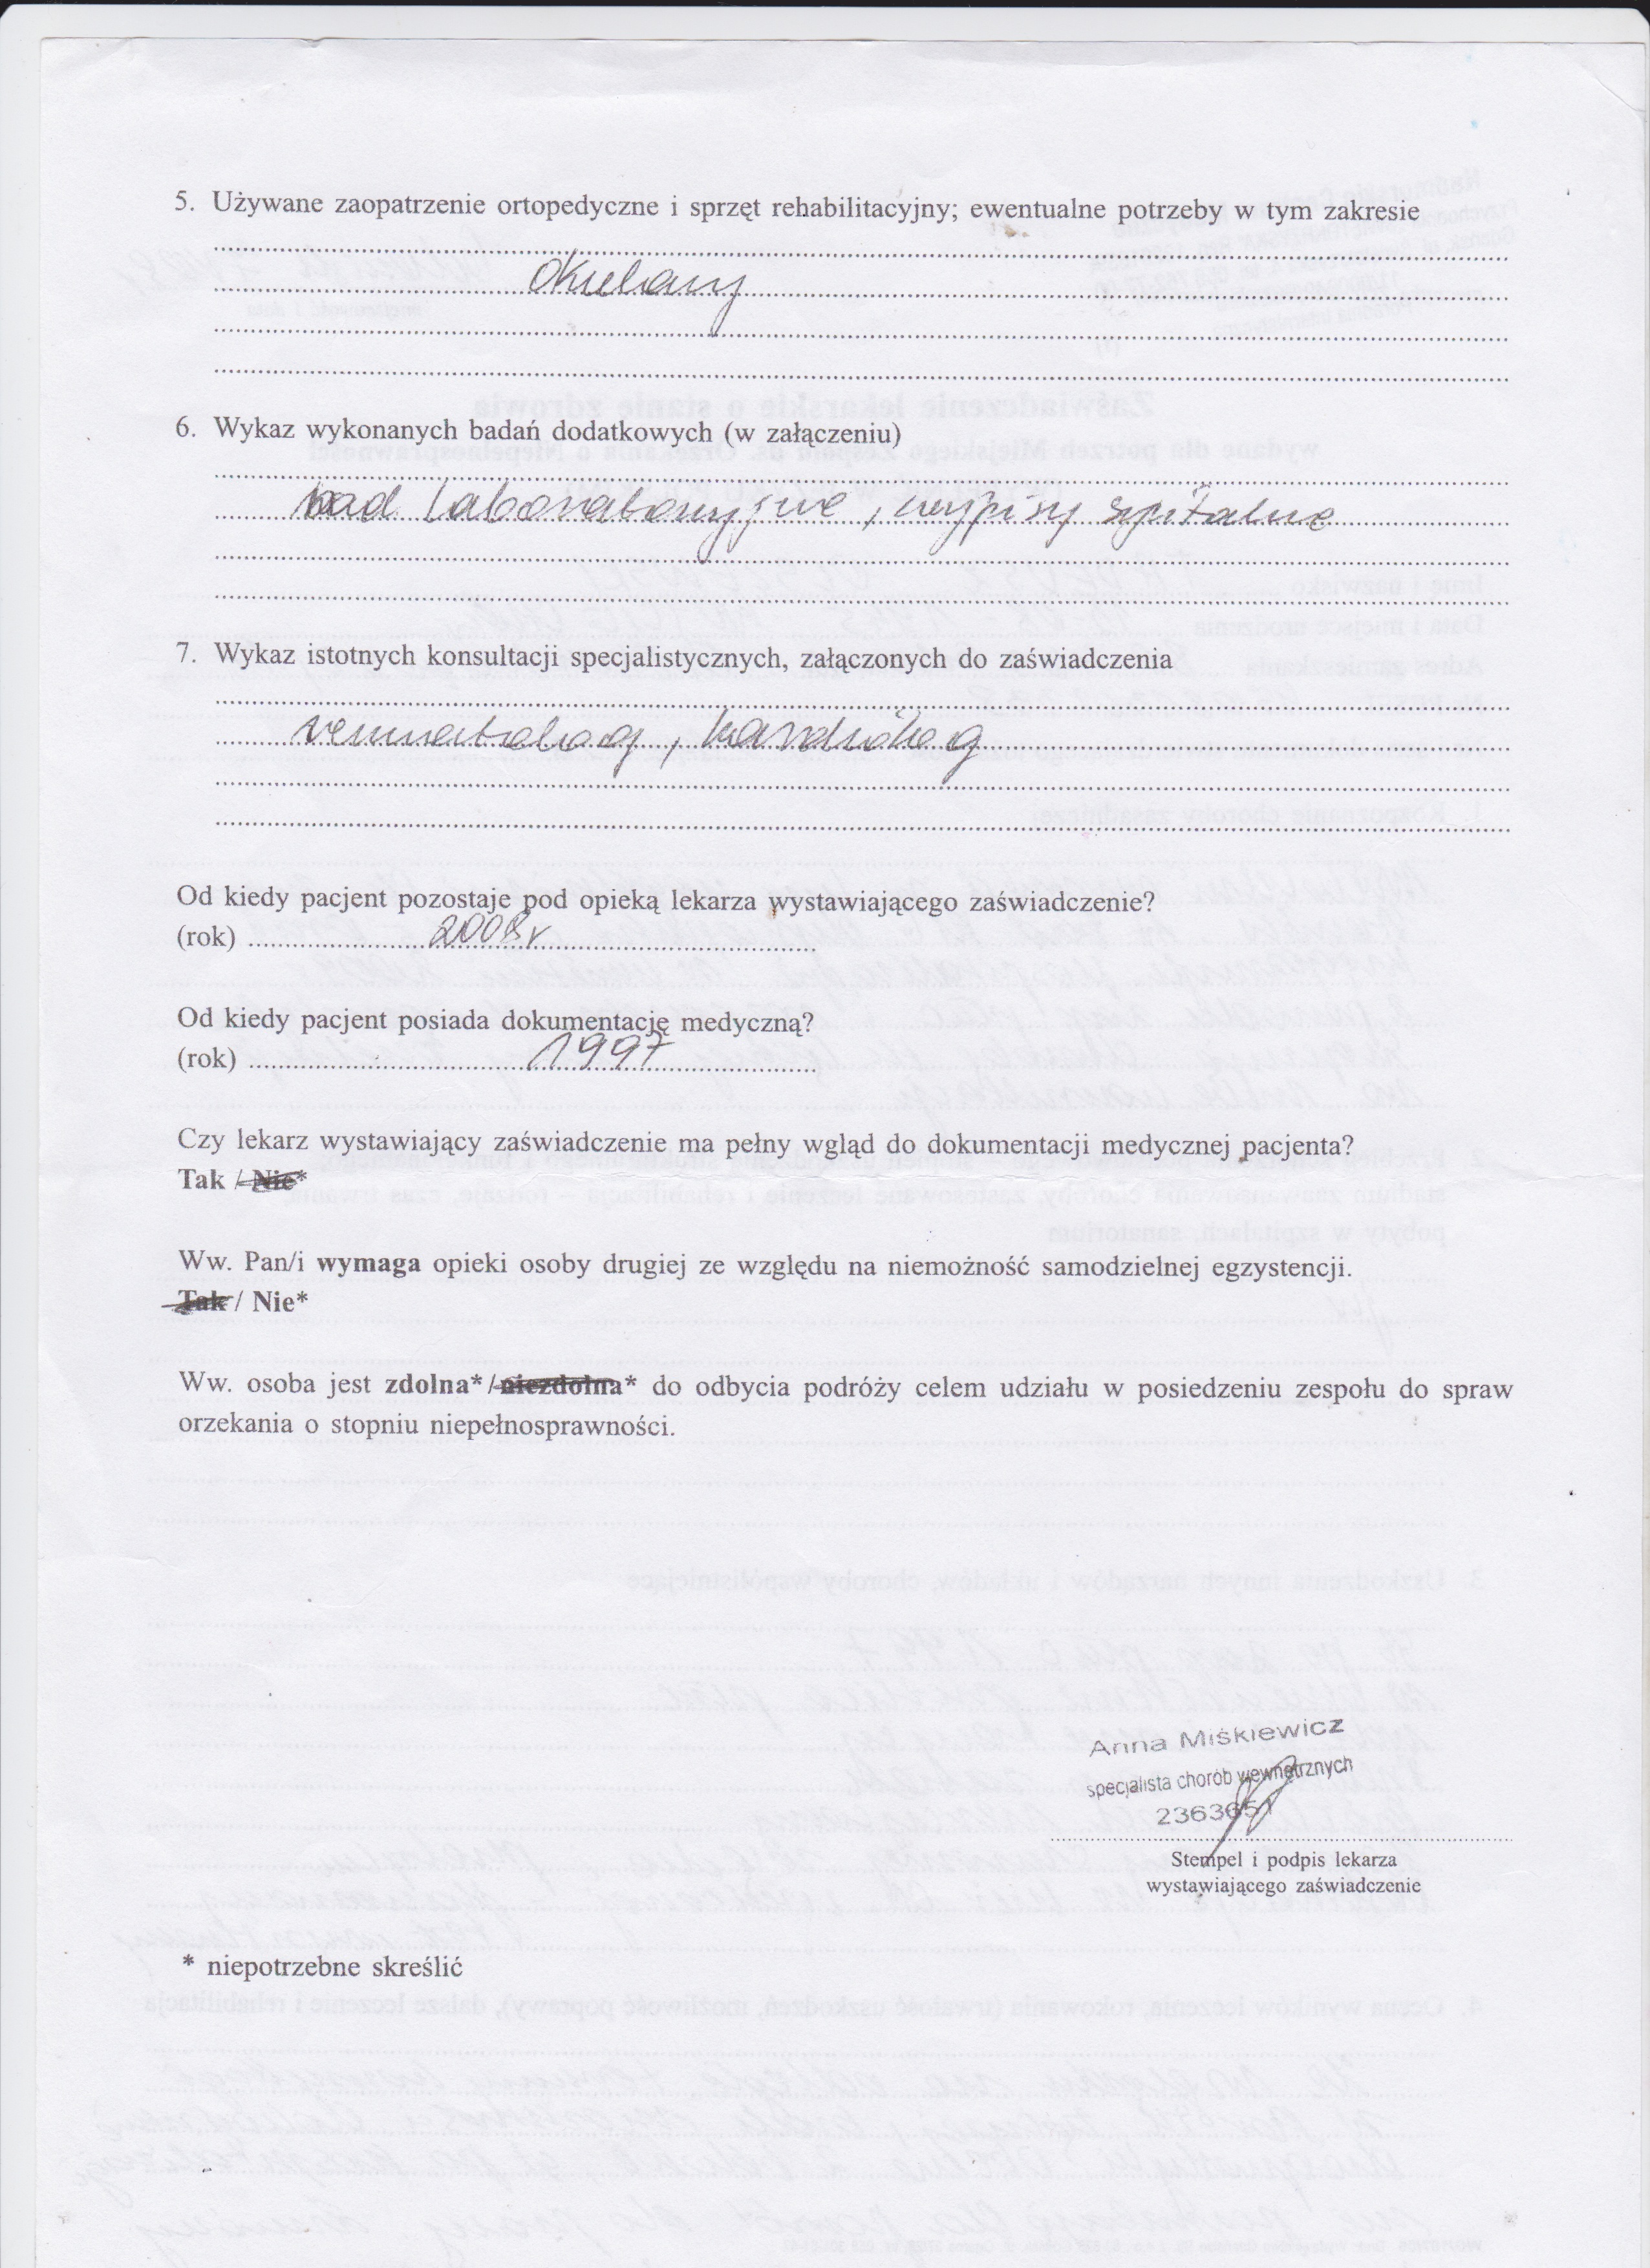 5. Używane zaopatrzenie ortopedyczne i sprzęt rehabilitacyjny; ewentualne potrzeby w tym zakresie
okulary
6. Wykaz wykonanych badań dodatkowych (w załączeniu)
bad laboratoryjne, wypisy szpitalne
7. Wykaz istotnych konsultacji specjalistycznych, załączonych do zaświadczenia
reumatolog, kardiolog
Od kiedy pacjent pozostaje pod opieką lekarza wystawiającego zaświadczenie?
(rok) 2008r
Od kiedy pacjent posiada dokumentację medyczną?
(rok) 1997
Czy lekarz wystawiający zaświadczenie ma pełny wgląd do dokumentacji medycznej pacjenta?
Tak / Nie*
Ww. Pan/i wymaga opieki osoby drugiej ze względu na niemożność samodzielnej egzystencji.
Tak / Nie*
Ww. osoba jest zdolna*/niezdolna* do odbycia podróży celem udziału w posiedzeniu zespołu do spraw
orzekania o stopniu niepełnosprawności.
Anna Miśkiewicz
specjalista chorób wewnętrznych
2363651
Stempel i podpis lekarza
wystawiającego zaświadczenie
* niepotrzebne skreślić